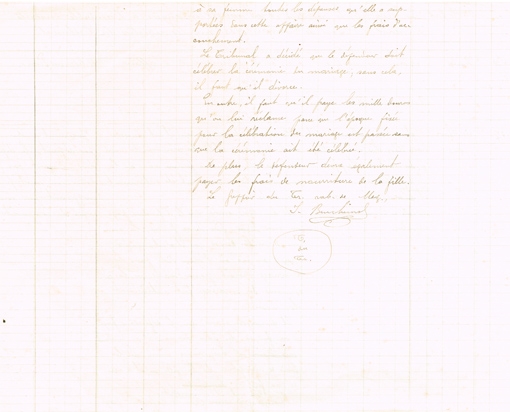 à sa femme toutes les dépenses qu'elle a sup-
portées dans cette affaire ainsi que les frais d'ac-
couchement.
Le Tribunal a décidé que le défendeur doit
célébrer la cérémonie du mariage, sans cela,
il faut qu'il divorce.
En outre, il faut qu'il paye les mille
qu'on lui réclame parce que l'époque fixée
pour la célébration du mariage est passée sans
que la cérémonie ait été célébrée.
De plus, le défendeur devra également
payer les frais de nourriture de la fille.
Le greffier du